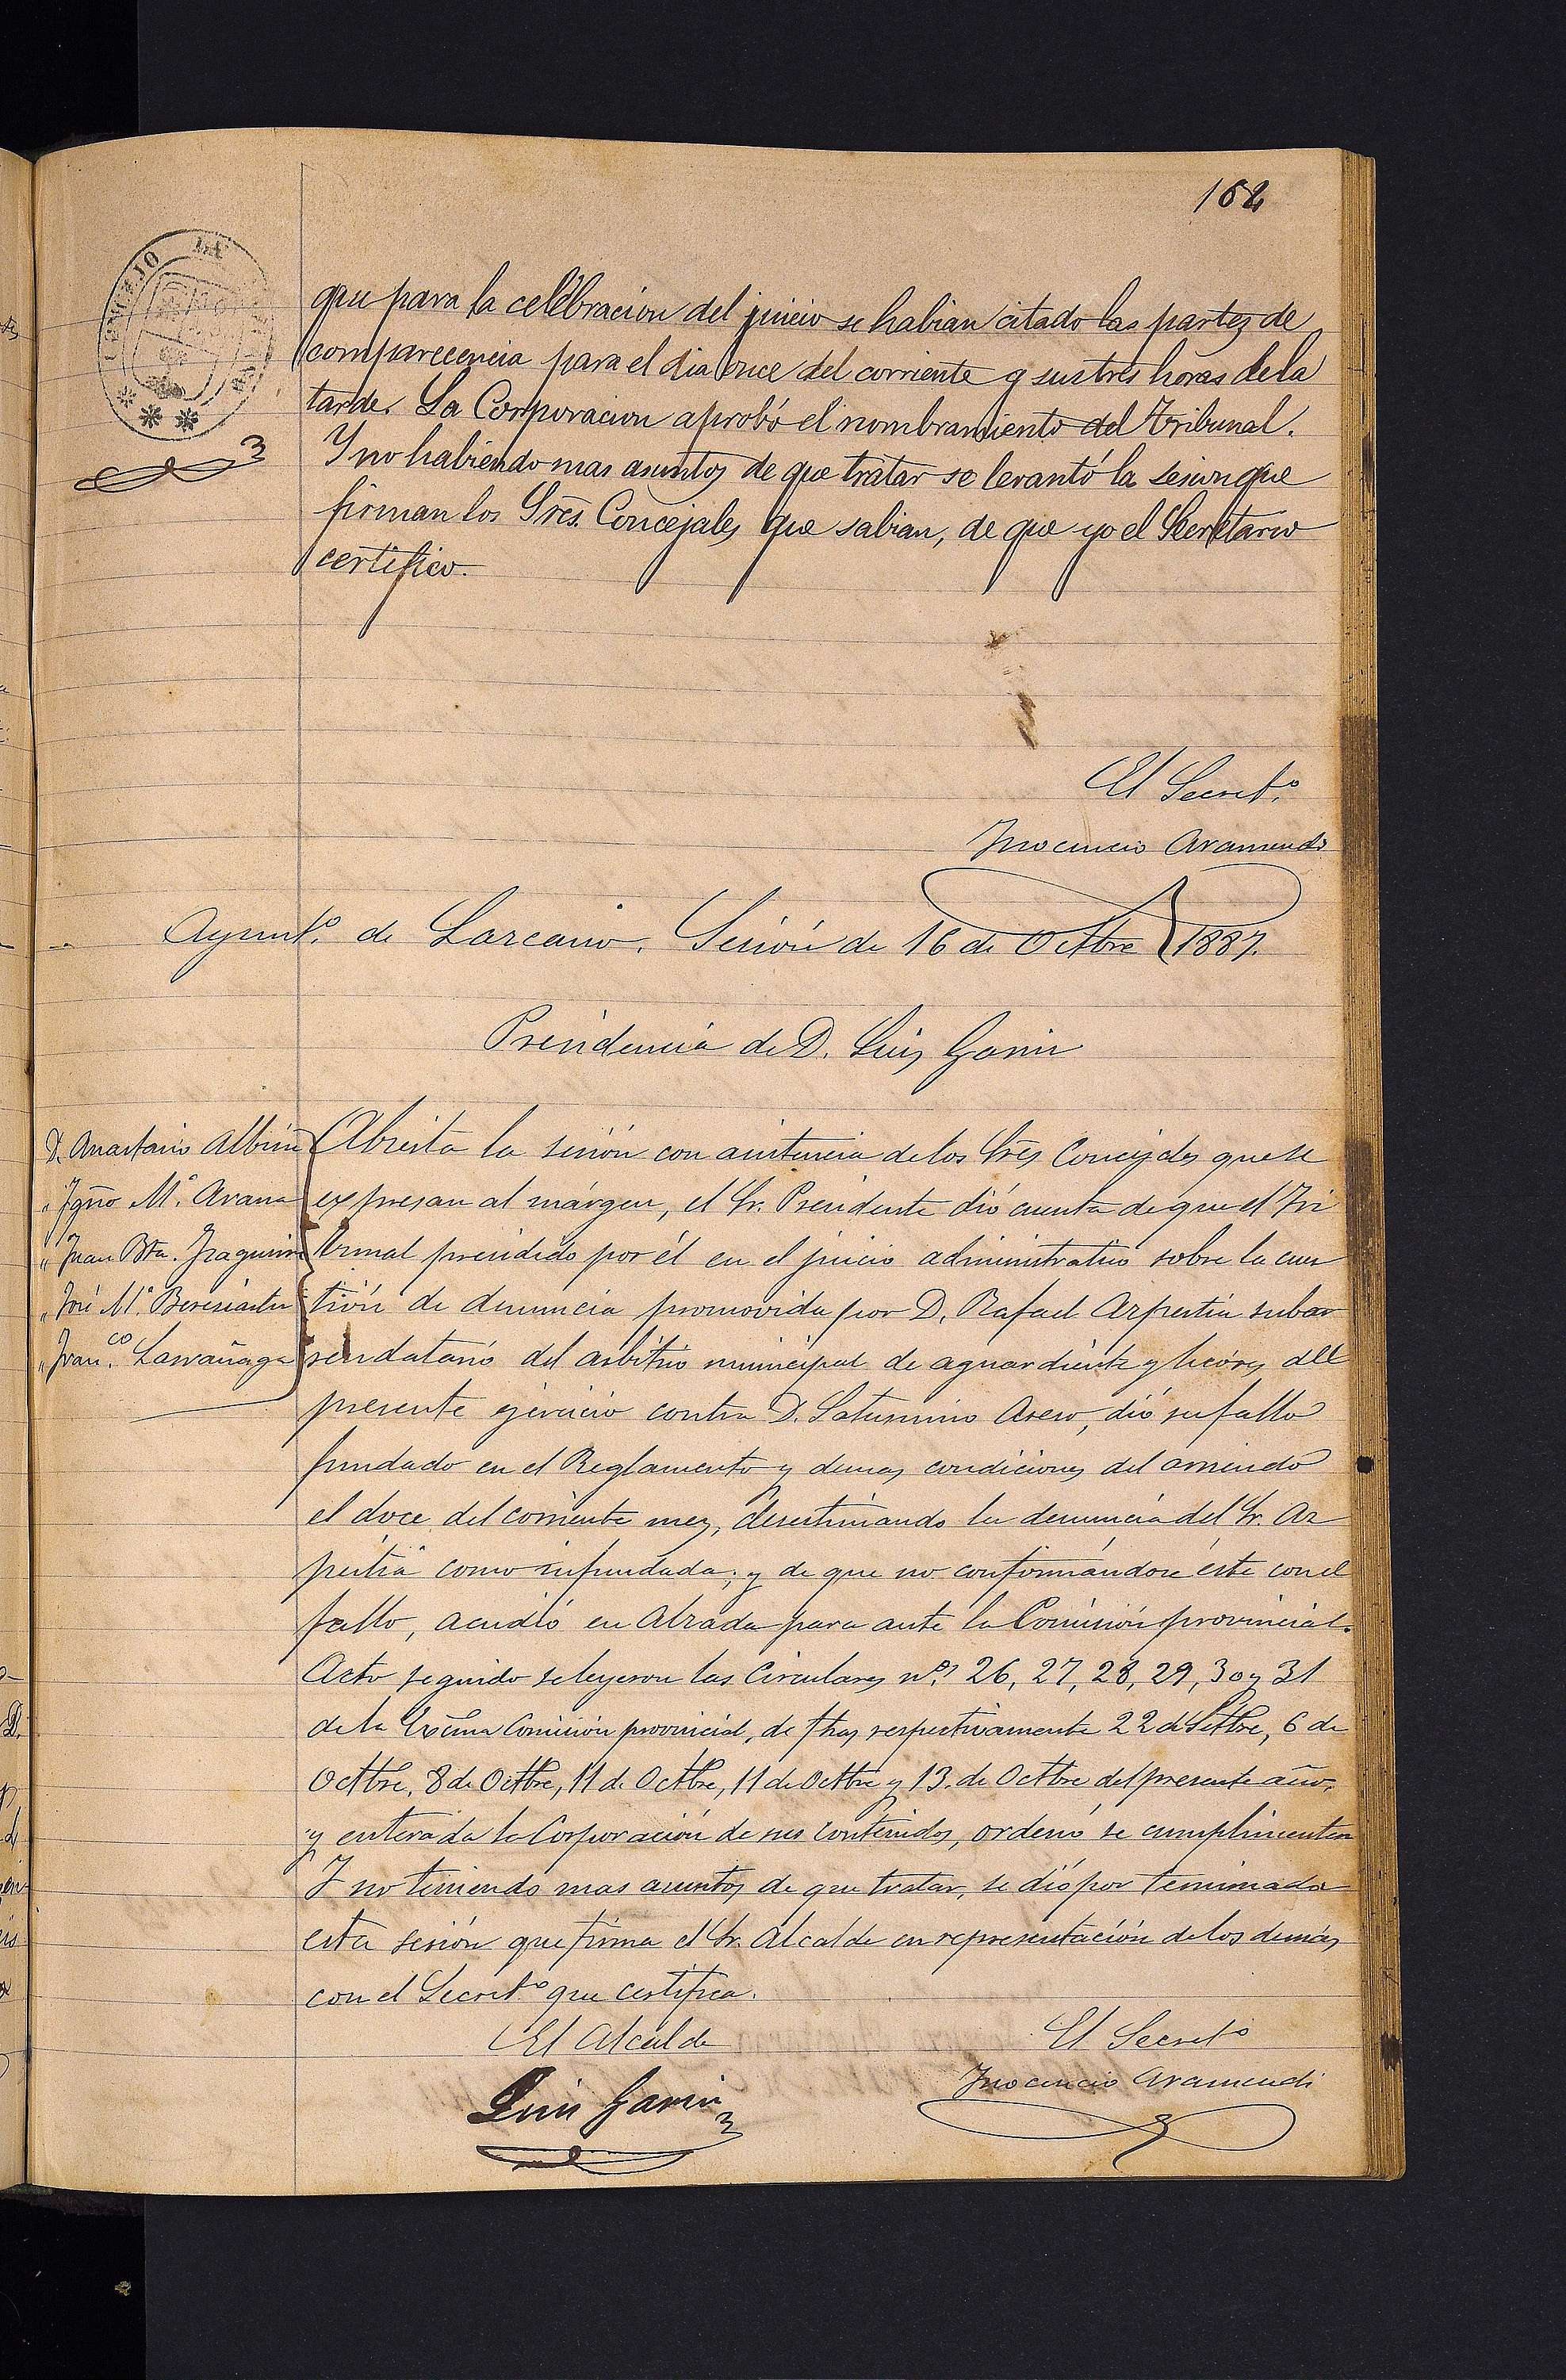 162
CONCEJO
que para la celebracion del juicio se habian citado las partes de
comparecencia para el dia once del corriente y sus tres horas de la
tarde. La Corporacion aprobó el nombramiento del Tribunal.
Y no habiendo mas asuntos de que tratar se levantó la sesion que
firman los Sres. Concejales que sabian, de que yo el Secretario
certifico.
El Secret.º
Inocencio Aramendi
Ayunt.º de Lazcano. Sesión de 16 de Octbre 1887.
Presidencia de D. Luis Garin
D. Anastasio Albisu
" Ygno M.ª Arana
" Juan Bta. Yraguirre
" José M.ª Beresiartu
" Fran.co Larrañaga
Abierta la sesión con asistencia de los Sres Concejales que se
expresan al márgen, el Sr. Presidente dió cuenta de que el Tri
bunal presidido por él en el juicio administrativo sobre la cues
tión de denuncia promovida por D. Rafael Azpeitia subar
rendatario del arbitrio municipal de aguardiente y licores del
presente ejercicio contra D. Saturnino Asero, dió su fallo
fundado en el Reglamento y demas condiciones del arriendo
el doce del corriente mes, desestimando la denuncia del Sr. Az
peitia como infundada; y de que no conformándose éste con el
fallo, acudió en Alzada para ante la Comisión provincial.
Acto seguido se leyeron las Circulares n.os 26, 27, 28, 29, 30 y 31
de la Excma Comisión provincial, de fhas respectivamente 22 de Setbre, 6 de
Octbre, 8 de Octbre, 11 de Octbre, 11 de Octbre y 13 de Octbre del presente año,
y enterada la Corporación de sus contenidos, ordenó se cumplimenten
Y no teniendo mas asuntos de que tratar, se dió por terminada
esta sesión que firma el Sr. Alcalde en representación de los demás
con el Secret.º que certifica.
El Alcalde
Luis Garin
El Secret.º
Inocencio Aramendi